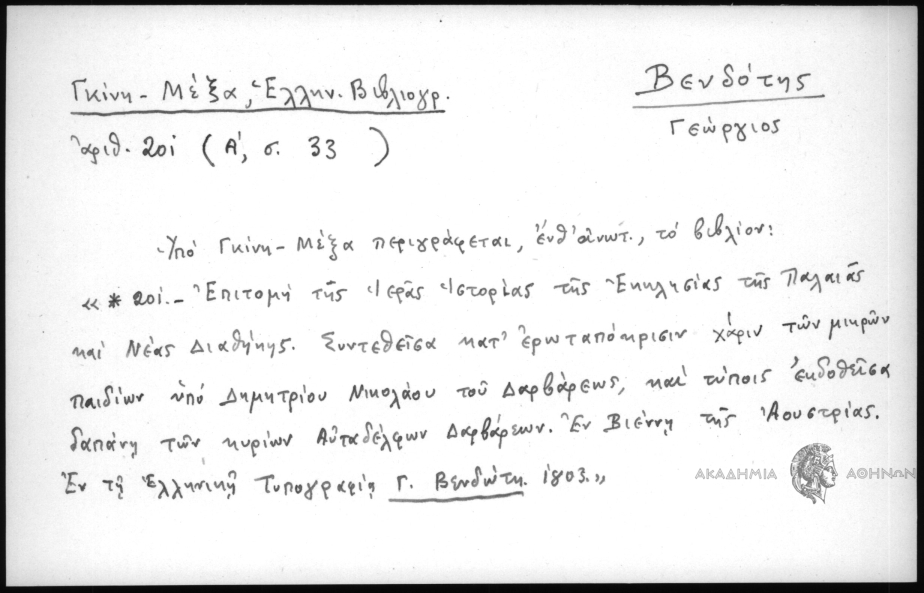 Γκίνη - Μέξα, Ἑλλην. Βιβλιογρ.
Βενδότης
Γεώργιος
ἀριθ. 201 (Α΄, σ. 33 )
Ὑπό Γκίνη - Μέξα περιγράφεται, ἐνθ' ἀνωτ., τό βιβλίον:
« * 201.- Ἐπιτομή τῆς Ἱερᾶς Ἱστορίας τῆς Ἐκκλησίας τῆς Παλαιᾶς
καί Νέας Διαθήκης. Συντεθεῖσα κατ' ἐρωταπόκρισιν χάριν τῶν μικρῶν
παιδίων ὑπό Δημητρίου Νικολάου τοῦ Δαρβάρεως, καί τύποις ἐκδοθεῖσα
δαπάνῃ τῶν κυρίων Αὐταδέλφων Δαρβάρεων. Ἐν Βιέννῃ τῆς Ἀουστρίας.
Ἐν τῇ Ἑλληνικῇ Τυπογραφίᾳ Γ. Βενδώτη. 1803.»
ΑΚΑΔΗΜΙΑ ΑΘΗΝΩΝ